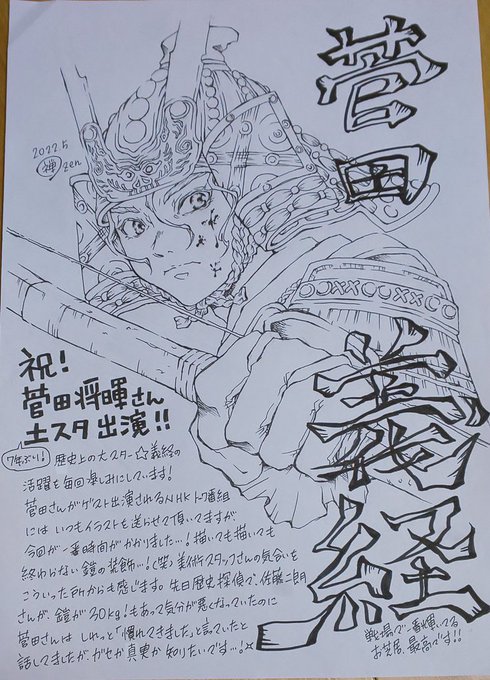 菅田
義経
2022.5
禅
zen
祝!
菅田将暉さん
土スタ出演!!
7年ぶり!
歴史上の大スター☆義経の
活躍を毎回楽しみにしています!
菅田さんがゲスト出演されるNHKトーク番組
には いつもイラストを送らせて頂いてますが、
今回が一番時間がかかりました…!描いても描いても
終わらない鎧の装飾…!(笑)美術スタッフさんの気合いを
こういった所からも感じます。先日歴史探偵で、佐藤二朗
さんが、鎧が30kg!もあって気分が悪くなっていたのに
菅田さんは しれっと「慣れてきました」と言っていたと
話してましたが、ガセか真実か 知りたいです…!
戦場で一番輝いてる
お芝居、最高です!!